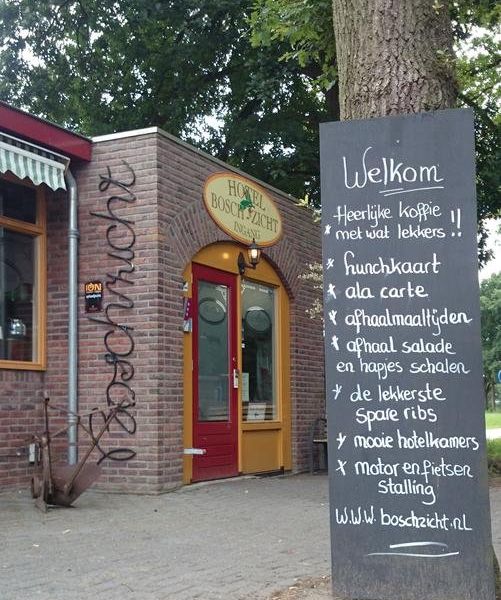 HOTEL
BOSCHZICHT
INGANG
Boschzicht
Welkom
* Heerlijke koffie
met wat lekkers !!
* Lunchkaart
* ala carte
* afhaalmaaltijden
* afhaal salade
en hapjes schalen
* de lekkerste
spare ribs
* mooie hotelkamers
* motor en fietsen
stalling
W.W.W. boschzicht.nL